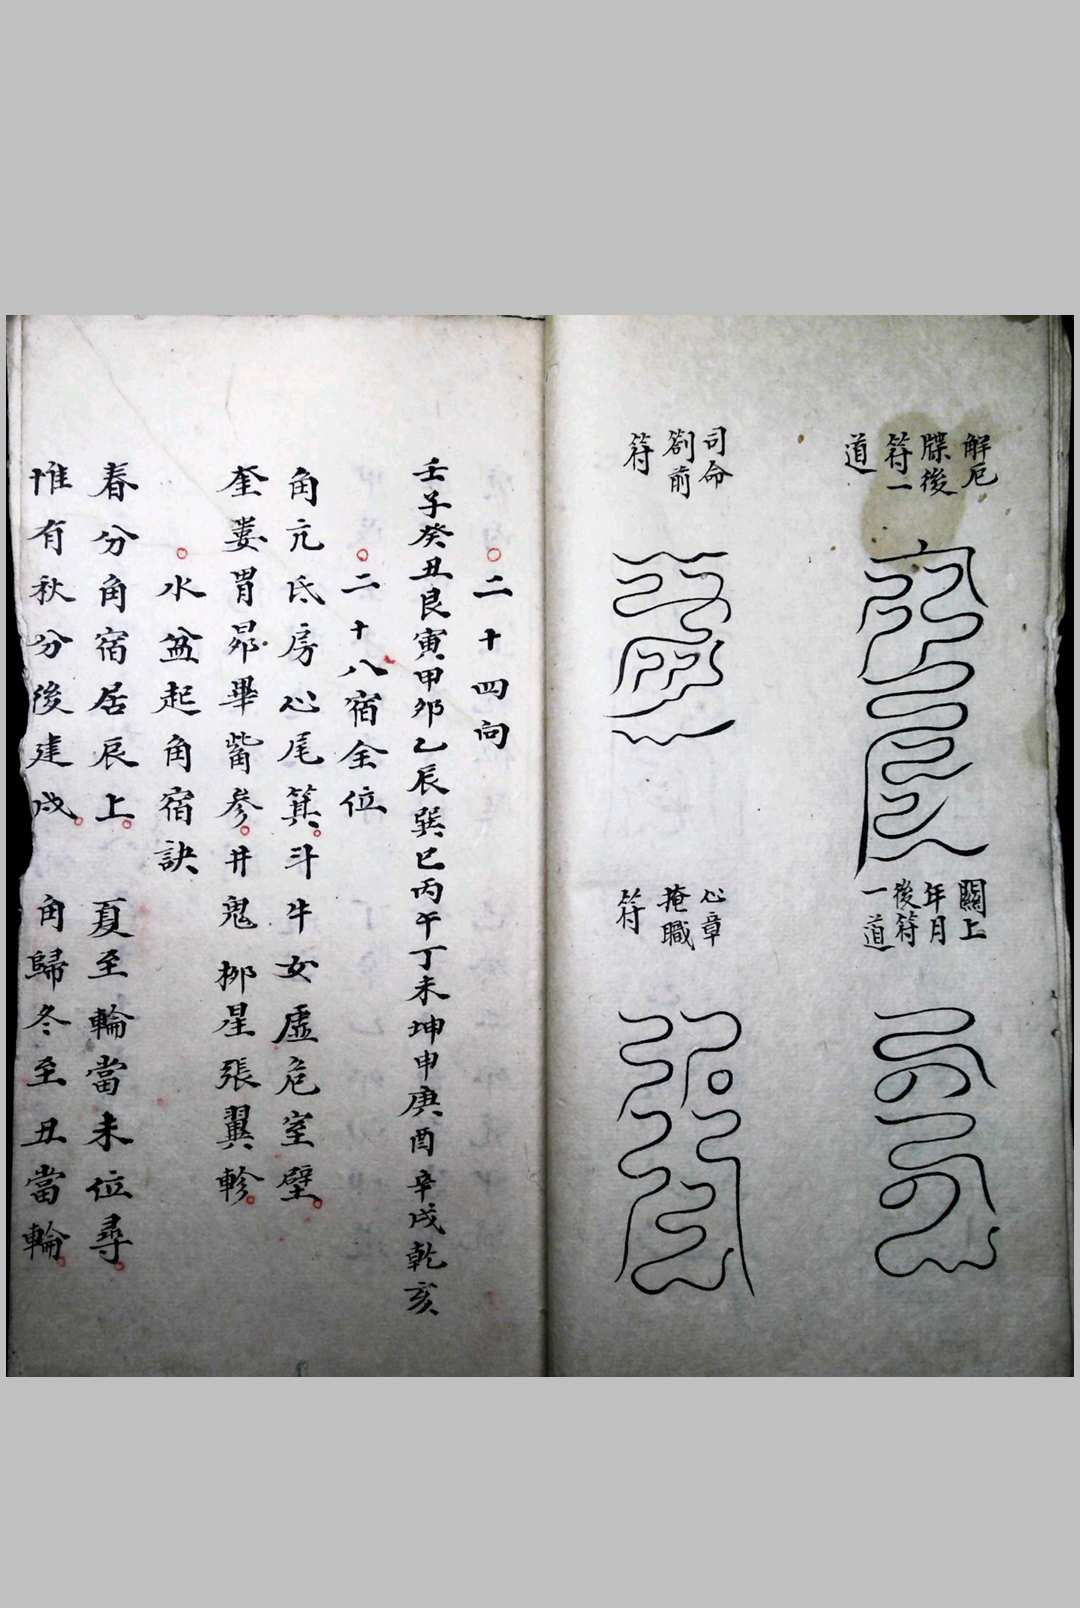 解厄
牒後
符一
道
關上
年月
後符
一道
司命
劄前
符
心章
掩職
符
二十四向
壬子癸丑艮寅甲卯乙辰巽巳丙午丁未坤申庚酉辛戌乾亥
二十八宿全位
角亢氐房心尾箕斗牛女虛危室壁
奎婁胃昴畢觜參井鬼柳星張翼軫
水盆起角宿訣
春分角宿居辰上 夏至輪當未位尋
惟有秋分後建戌 角歸冬至丑當輪